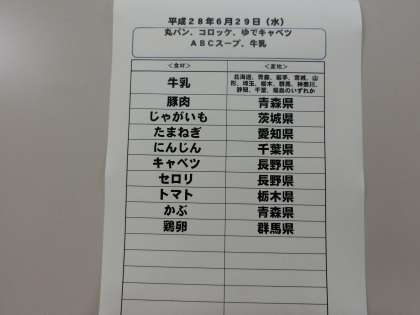 平成28年6月29日(水)
丸パン、コロッケ、ゆでキャベツ
ABCスープ、牛乳
<食材> <産地>
牛乳 北海道、青森、岩手、宮城、山
形、埼玉、栃木、群馬、神奈川、
静岡、千葉、福島のいずれか
豚肉 青森県
じゃがいも 茨城県
たまねぎ 愛知県
にんじん 千葉県
キャベツ 長野県
セロリ 長野県
トマト 栃木県
かぶ 青森県
鶏卵 群馬県